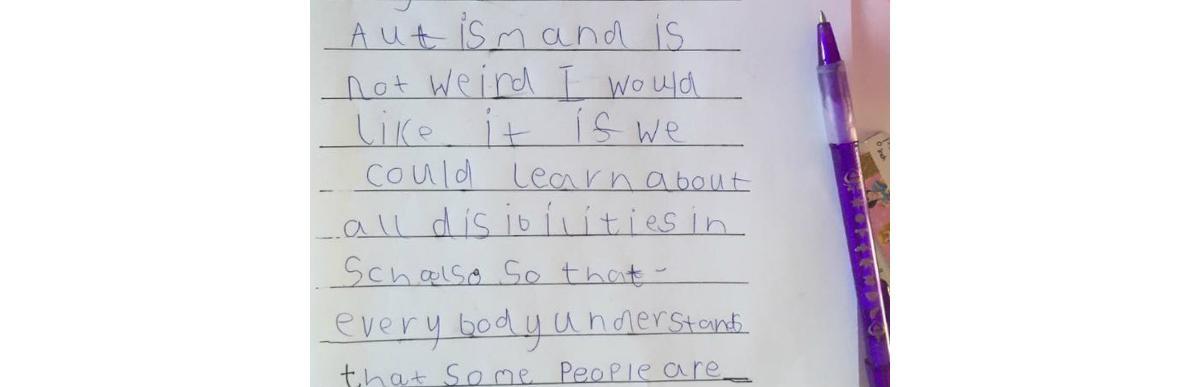 Autism and is
not weird I would
like it if we
could learn about
all disibilities in
so that -
everybody understands
that some people are